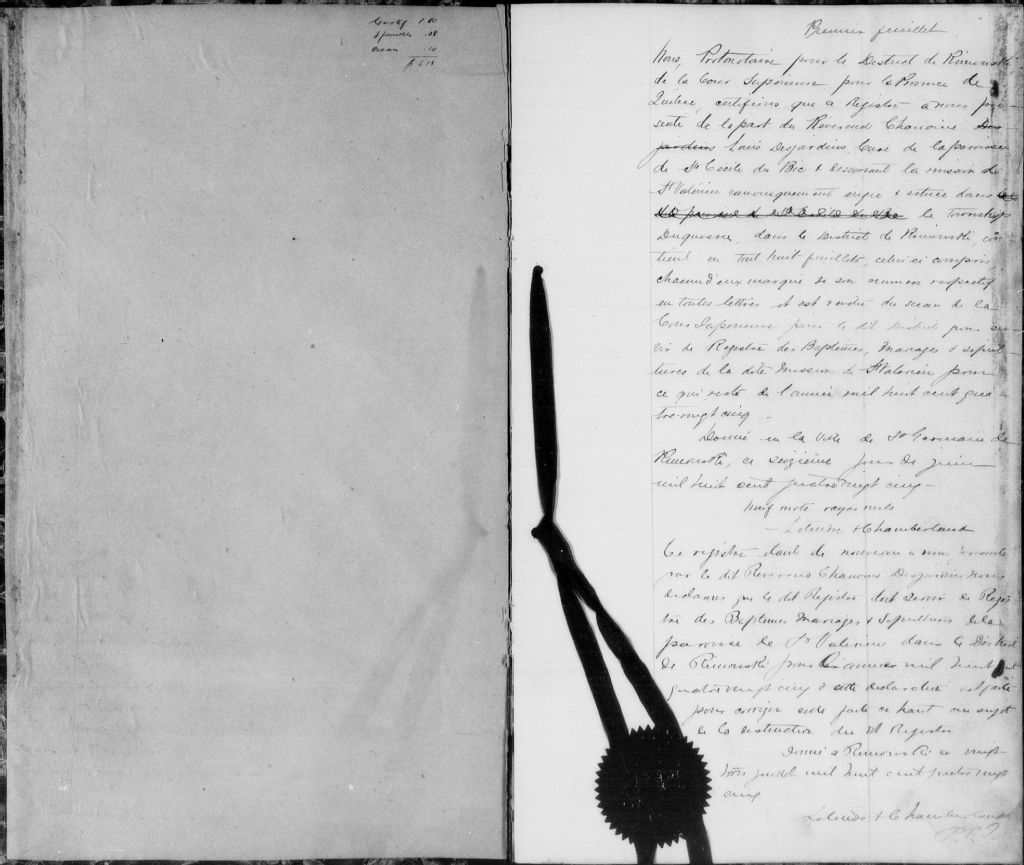 Certif 1.00
8 feuilles .08
Sceau .10
Premier feuillet
Nous, Protonotaire pour le District de Rimouski,
de la Cour Supérieure pour la Province de
Québec, certifions que ce Registre a nous pré-
senté de la part du Révérend Chanoine Des
jardins Louis Desjardins, Curé de la paroisse
de Ste Cécile du Bic & desservant la mission de
St Valérien canoniquement érigée & située dans
la paroisse de Ste Cécile du Bic le Township
Duquesne, dans le District de Rimouski, con-
tient en tout huit feuillets, celui ci compris,
chacun d'eux marqué de son numéro respectif
en toutes lettres et est revêtu du sceau de la
Cour Supérieure pour le dit District pour ser-
vir de Registre des Baptêmes, Mariages & sépul-
tures de la dite Mission de St Valérien pour
ce qui reste de l'année mil huit cent qua
tre-vingt cinq.
Donné en la Ville de St Germain de
Rimouski, ce seizième jour de juin
mil huit cent quatre vingt cinq -
Neuf mots rayés nuls
Letendre & Chamberland
Ce registre étant de nouveau a nous présenté
par le dit Révérend Chanoine Desjardins nous
déclarons que le dit Registre doit servir de Regis
tre des Baptêmes Mariages & Sépultures de la
paroisse de St Valérien dans le District
de Rimouski pour l'année mil huit cent
quatre vingt cinq & cette déclaration est faite
pour corriger celle faite ci haut au sujet
de la destination du dit Registre
Donné à Rimouski ce vingt
trois juillet mil huit cent quatre vingt
cinq
Letendre & Chamberland